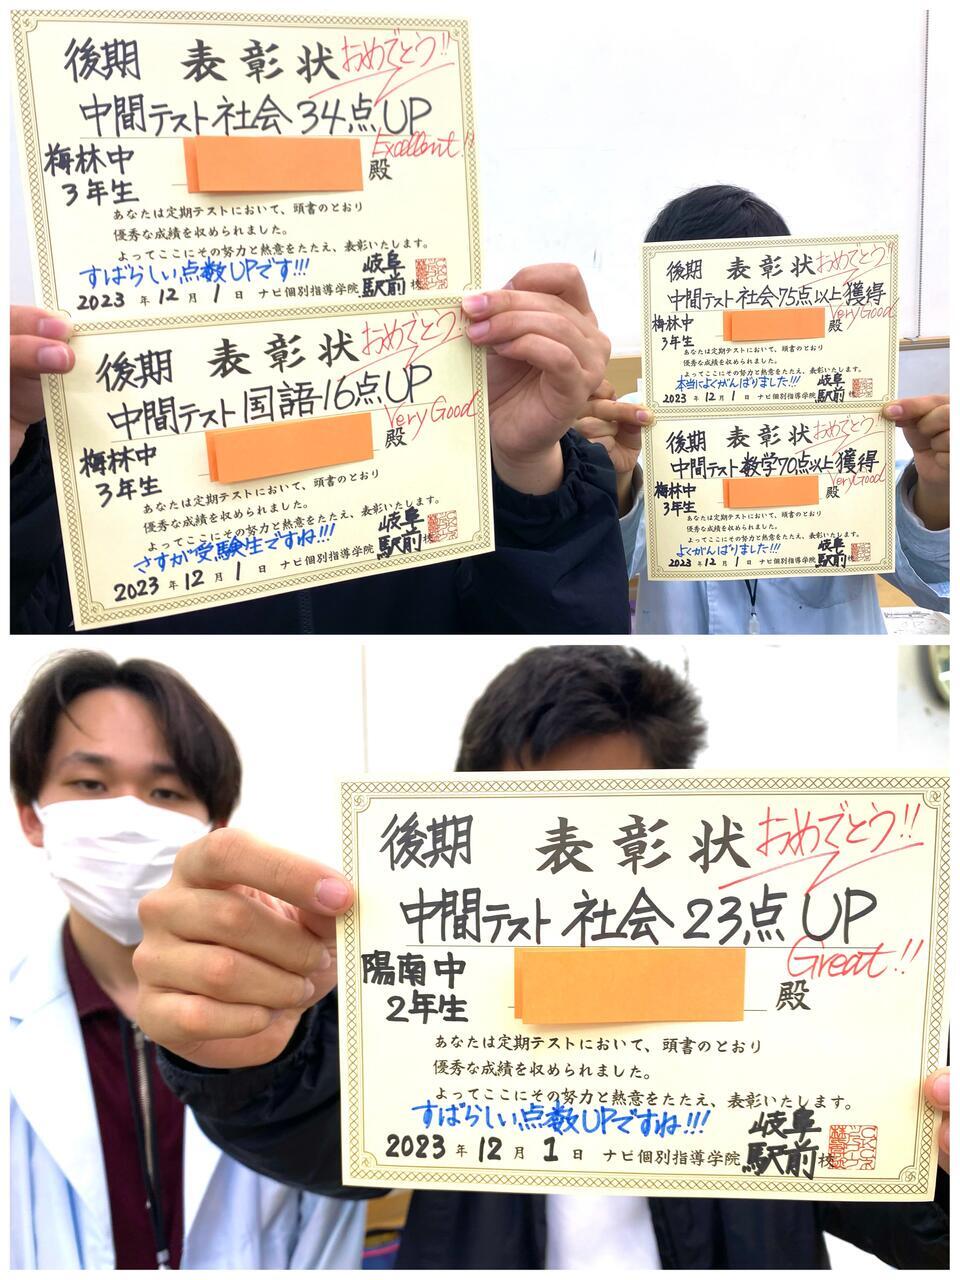 後期 表彰状 おめでとう!!
中間テスト 社会 34点UP
Excellent!!
梅林中
3年生
殿
あなたは定期テストにおいて、頭書のとおり
優秀な成績を収められました。
よってここにその努力と熱意をたたえ、表彰いたします。
すばらしい点数UPです!!!
2023年12月1日 ナビ個別指導学院 岐阜駅前校
後期 表彰状 おめでとう!!
中間テスト 国語 16点UP
Very Good
梅林中
3年生
殿
あなたは定期テストにおいて、頭書のとおり
優秀な成績を収められました。
よってここにその努力と熱意をたたえ、表彰いたします。
さすが受験生ですね!!!
2023年12月1日 ナビ個別指導学院 岐阜駅前校
後期 表彰状 おめでとう!!
中間テスト 社会75点以上獲得
Very Good
梅林中
3年生
殿
あなたは定期テストにおいて、頭書のとおり
優秀な成績を収められました。
よってここにその努力と熱意をたたえ、表彰いたします。
本当によくがんばりました!!!
2023年12月1日 ナビ個別指導学院 岐阜駅前校
後期 表彰状 おめでとう!!
中間テスト 数学70点以上獲得
Very Good
梅林中
3年生
殿
あなたは定期テストにおいて、頭書のとおり
優秀な成績を収められました。
よってここにその努力と熱意をたたえ、表彰いたします。
よくがんばりました!!!
2023年12月1日 ナビ個別指導学院 岐阜駅前校
後期 表彰状 おめでとう!!
中間テスト 社会 23点UP
Great!!
陽南中
2年生
殿
あなたは定期テストにおいて、頭書のとおり
優秀な成績を収められました。
よってここにその努力と熱意をたたえ、表彰いたします。
すばらしい点数UPですね!!!
2023年12月1日 ナビ個別指導学院 岐阜駅前校